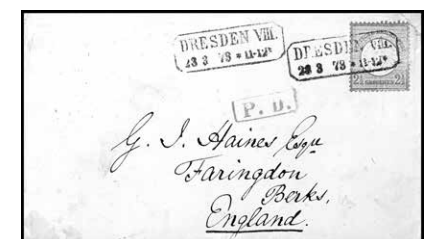 DRESDEN VIII.
23 3 73 * 11-12*
DRESDEN VIII.
23 3 73 * 11-12*
2½ 2½
P. D.
G. J. Haines Esqu
Faringdon
Berks,
England.